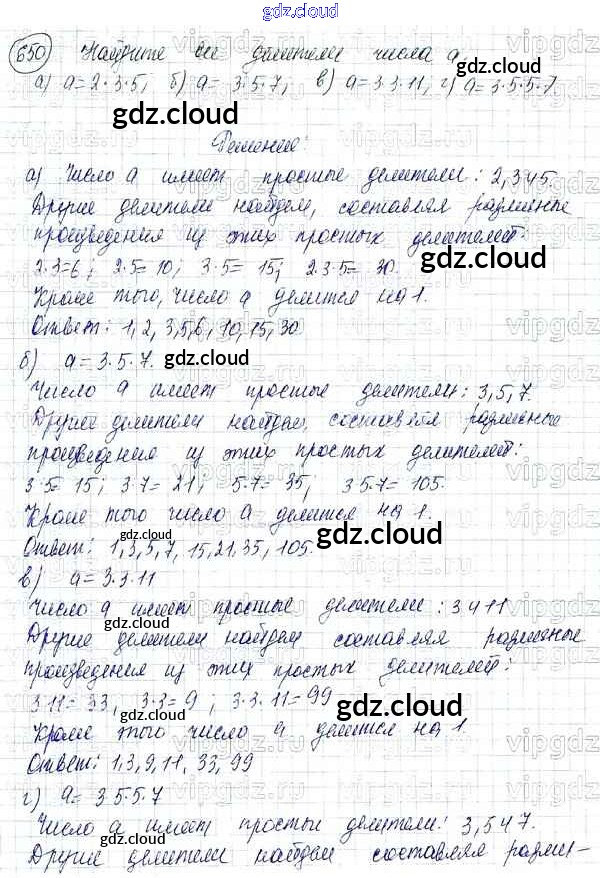 gdz.cloud
650 Найдите все делители числа a
а) a=2·3·5, б) a= 3·5·7, в) a=3·3·11, г) a=3·5·5·7
gdz.cloud gdz.cloud
Решение:
а) Число a имеет простые делители: 2,3 и 5.
Другие делители найдем, составляя различные
произведения из этих простых делителей:
2·3=6; 2·5=10; 3·5=15; 2·3·5=30.
gdz.cloud
Кроме того, число a делится на 1.
Ответ: 1,2,3,5,6,10,15,30
б) a=3·5·7. gdz.cloud
Число a имеет простые делители: 3,5,7.
Другие делители найдем, составляя различные
произведения из этих простых делителей:
3·5=15; 3·7=21; 5·7=35; 3 5·7=105.
Кроме того число a делится на 1.
Ответ: 1,3,5,7,15,21,35,105.
gdz.cloud gdz.cloud
в) a=3·3·11
gdz.cloud
Число a имеет простые делители: 3 и 11
Другие делители найдем составляя различные
произведения из этих простых делителей:
3·11=33, 3·3=9; 3·3·11=99
gdz.cloud gdz.cloud
Кроме того число a делится на 1.
Ответ: 1,3,9,11,33,99
г) a=3 5·5·7
gdz.cloud
Число a имеет простые делители: 3,5 и 7.
gdz.cloud
Другие делители найдем составляя разли-